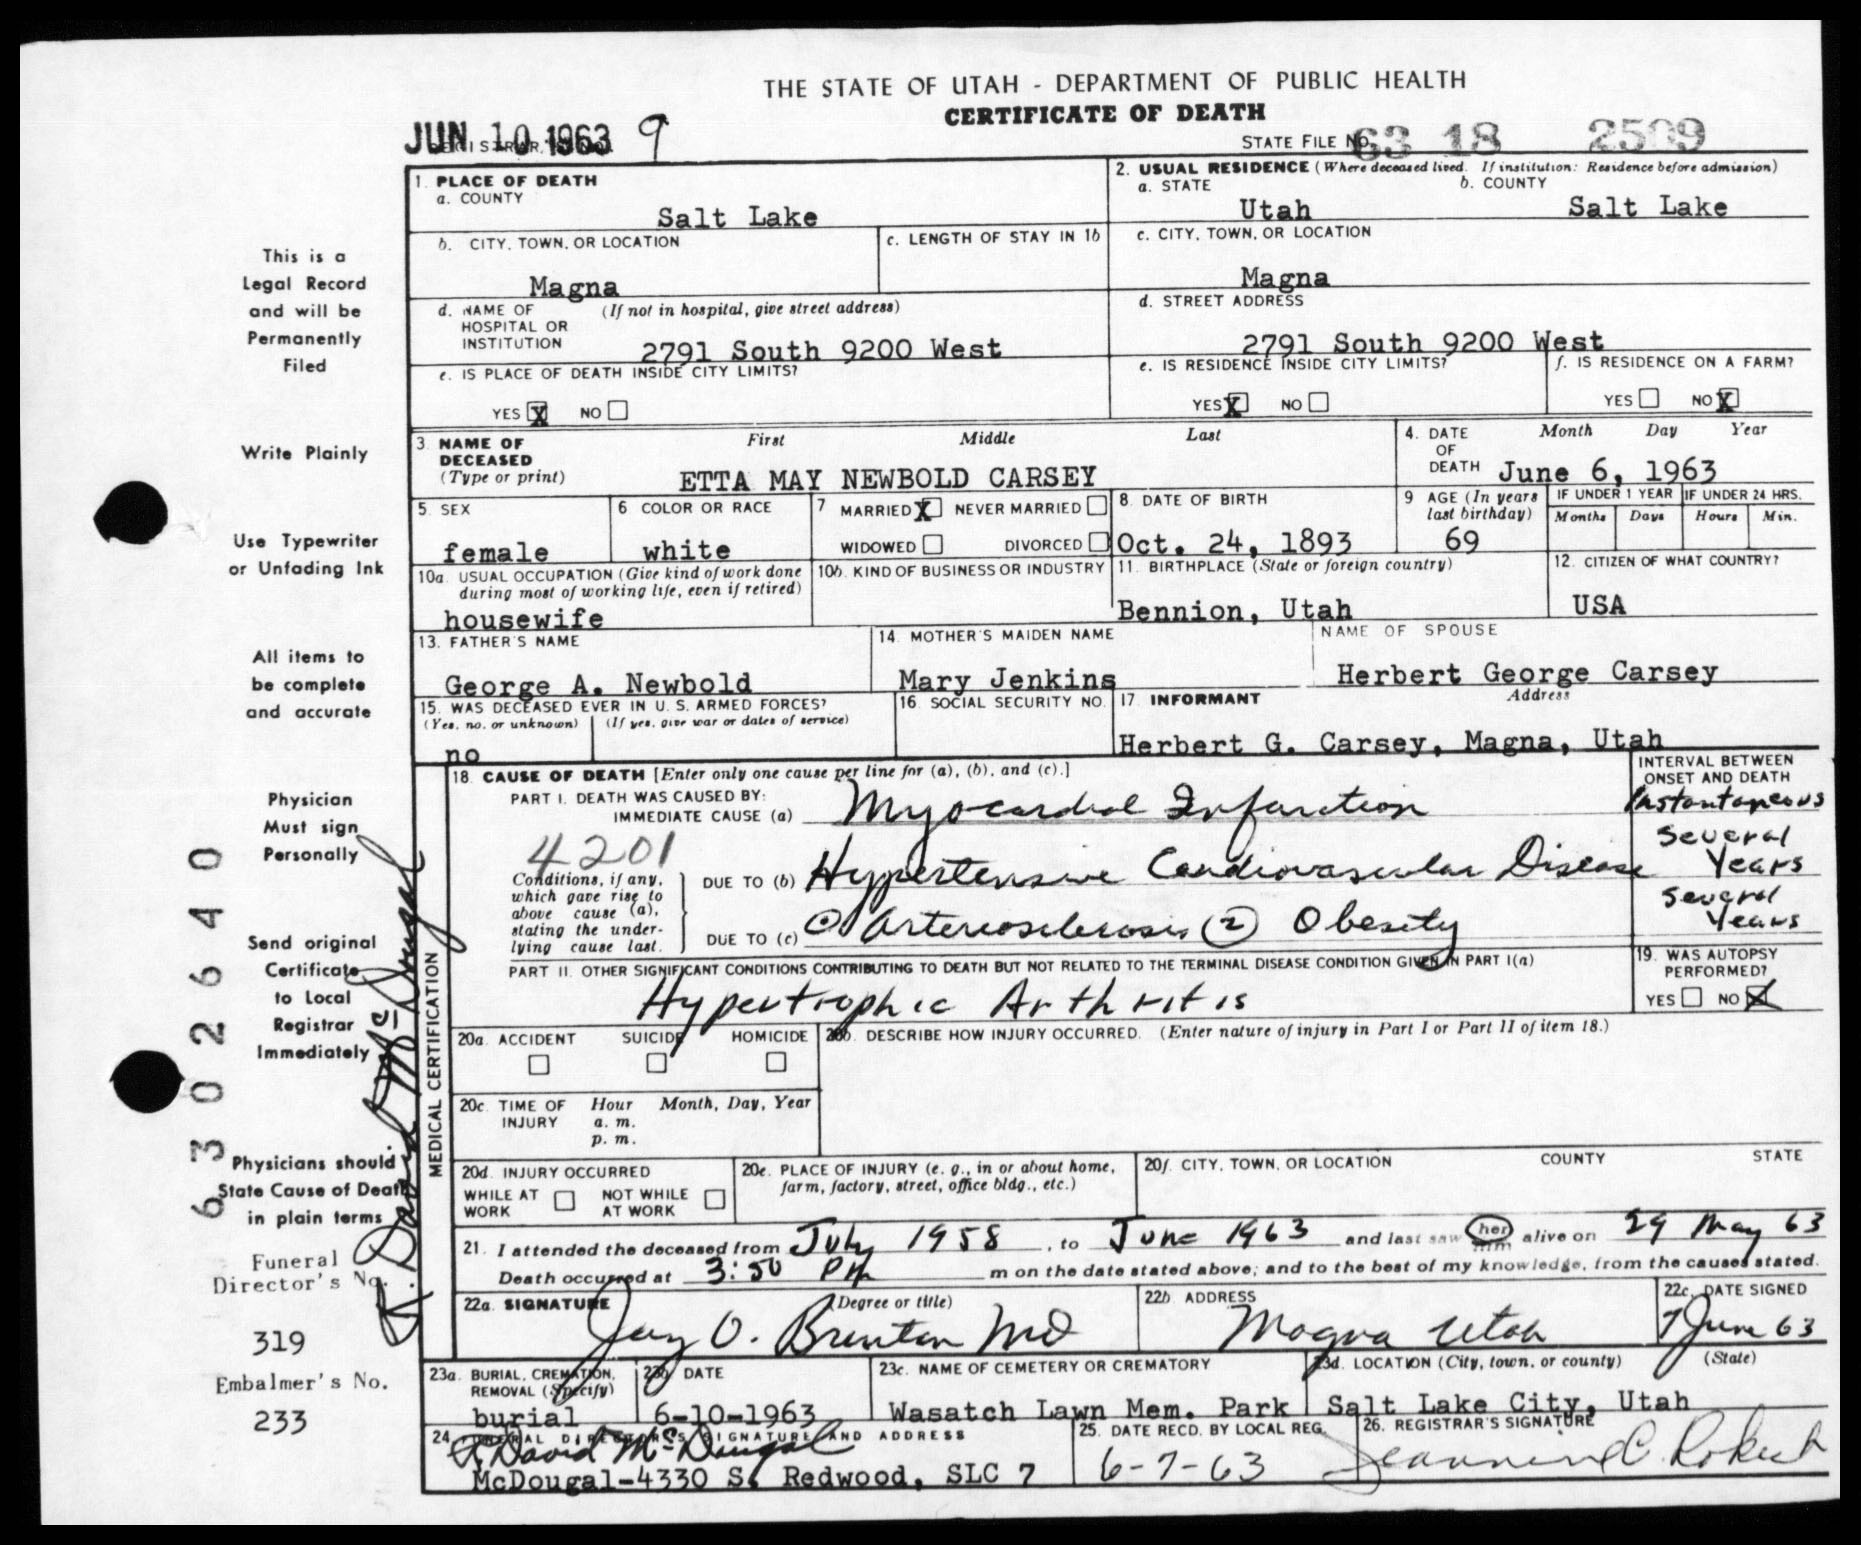 THE STATE OF UTAH - DEPARTMENT OF PUBLIC HEALTH
CERTIFICATE OF DEATH
JUN 10 1963 9
STATE FILE NO. 63 18 2509
1. PLACE OF DEATH
a. COUNTY
Salt Lake
2. USUAL RESIDENCE (Where deceased lived. If institution: Residence before admission)
a. STATE
Utah
b. COUNTY
Salt Lake
b. CITY, TOWN, OR LOCATION
Magna
c. LENGTH OF STAY IN 1b
c. CITY, TOWN, OR LOCATION
Magna
d. NAME OF HOSPITAL OR INSTITUTION (If not in hospital, give street address)
2791 South 9200 West
d. STREET ADDRESS
2791 South 9200 West
e. IS PLACE OF DEATH INSIDE CITY LIMITS?
YES X NO
e. IS RESIDENCE INSIDE CITY LIMITS?
YES X NO
f. IS RESIDENCE ON A FARM?
YES NO X
3. NAME OF DECEASED (Type or print)
First Middle Last
ETTA MAY NEWBOLD CARSEY
4. DATE OF DEATH
Month Day Year
June 6, 1963
5. SEX
female
6 COLOR OR RACE
white
7 MARRIED X NEVER MARRIED
WIDOWED DIVORCED
8. DATE OF BIRTH
Oct. 24, 1893
9 AGE (In years last birthday)
69
IF UNDER 1 YEAR
Months Days
IF UNDER 24 HRS.
Hours Min.
10a. USUAL OCCUPATION (Give kind of work done during most of working life, even if retired)
housewife
10b. KIND OF BUSINESS OR INDUSTRY
11. BIRTHPLACE (State or foreign country)
Bennion, Utah
12. CITIZEN OF WHAT COUNTRY?
USA
13. FATHER'S NAME
George A. Newbold
14. MOTHER'S MAIDEN NAME
Mary Jenkins
NAME OF SPOUSE
Herbert George Carsey
15. WAS DECEASED EVER IN U. S. ARMED FORCES?
(Yes, no, or unknown) (If yes, give war or dates of service)
no
16. SOCIAL SECURITY NO.
17 INFORMANT Address
Herbert G. Carsey, Magna, Utah
MEDICAL CERTIFICATION
18. CAUSE OF DEATH [Enter only one cause per line for (a), (b), and (c).]
INTERVAL BETWEEN ONSET AND DEATH
PART I. DEATH WAS CAUSED BY:
IMMEDIATE CAUSE (a) Myocardial Infarction
Instantaneous
4201
Conditions, if any, which gave rise to above cause (a), stating the underlying cause last.
DUE TO (b) Hypertensive Cardiovascular Disease
Several Years
DUE TO (c) ① Arteriosclerosis ② Obesity
Several Years
PART II. OTHER SIGNIFICANT CONDITIONS CONTRIBUTING TO DEATH BUT NOT RELATED TO THE TERMINAL DISEASE CONDITION GIVEN IN PART I(a)
Hypertrophic Arthritis
19. WAS AUTOPSY PERFORMED?
YES NO X
20a. ACCIDENT SUICIDE HOMICIDE
20b. DESCRIBE HOW INJURY OCCURRED. (Enter nature of injury in Part I or Part II of item 18.)
20c. TIME OF INJURY Hour Month, Day, Year
a. m.
p. m.
20d. INJURY OCCURRED
WHILE AT WORK NOT WHILE AT WORK
20e. PLACE OF INJURY (e. g., in or about home, farm, factory, street, office bldg., etc.)
20f. CITY, TOWN, OR LOCATION COUNTY STATE
21. I attended the deceased from July 1958, to June 1963 and last saw her him alive on 29 May 63
Death occurred at 3:50 PM m on the date stated above; and to the best of my knowledge, from the causes stated.
22a. SIGNATURE (Degree or title)
Jay O. Brinton MD
22b ADDRESS
Magna Utah
22c. DATE SIGNED
7 June 63
23a. BURIAL, CREMATION, REMOVAL (Specify)
burial
23b DATE
6-10-1963
23c. NAME OF CEMETERY OR CREMATORY
Wasatch Lawn Mem. Park
23d. LOCATION (City, town, or county) (State)
Salt Lake City, Utah
24 FUNERAL DIRECTOR'S SIGNATURE AND ADDRESS
R. David McDougal
McDougal-4330 S. Redwood, SLC 7
25. DATE RECD. BY LOCAL REG.
6-7-63
26. REGISTRAR'S SIGNATURE
This is a
Legal Record
and will be
Permanently
Filed
Write Plainly
Use Typewriter
or Unfading Ink
All items to
be complete
and accurate
Physician
Must sign
Personally
Send original
Certificate
to Local
Registrar
Immediately
Physicians should
State Cause of Death
in plain terms
Funeral
Director's No.
319
Embalmer's No.
233
R. David McDougal
6302640